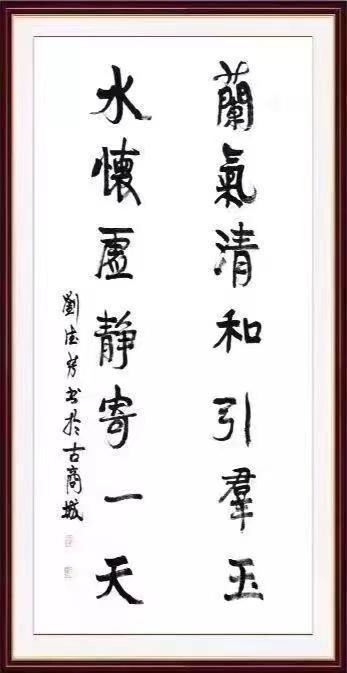 蘭氣清和引羣玉
水懷虛靜寄一天
劉德芳书於古商城